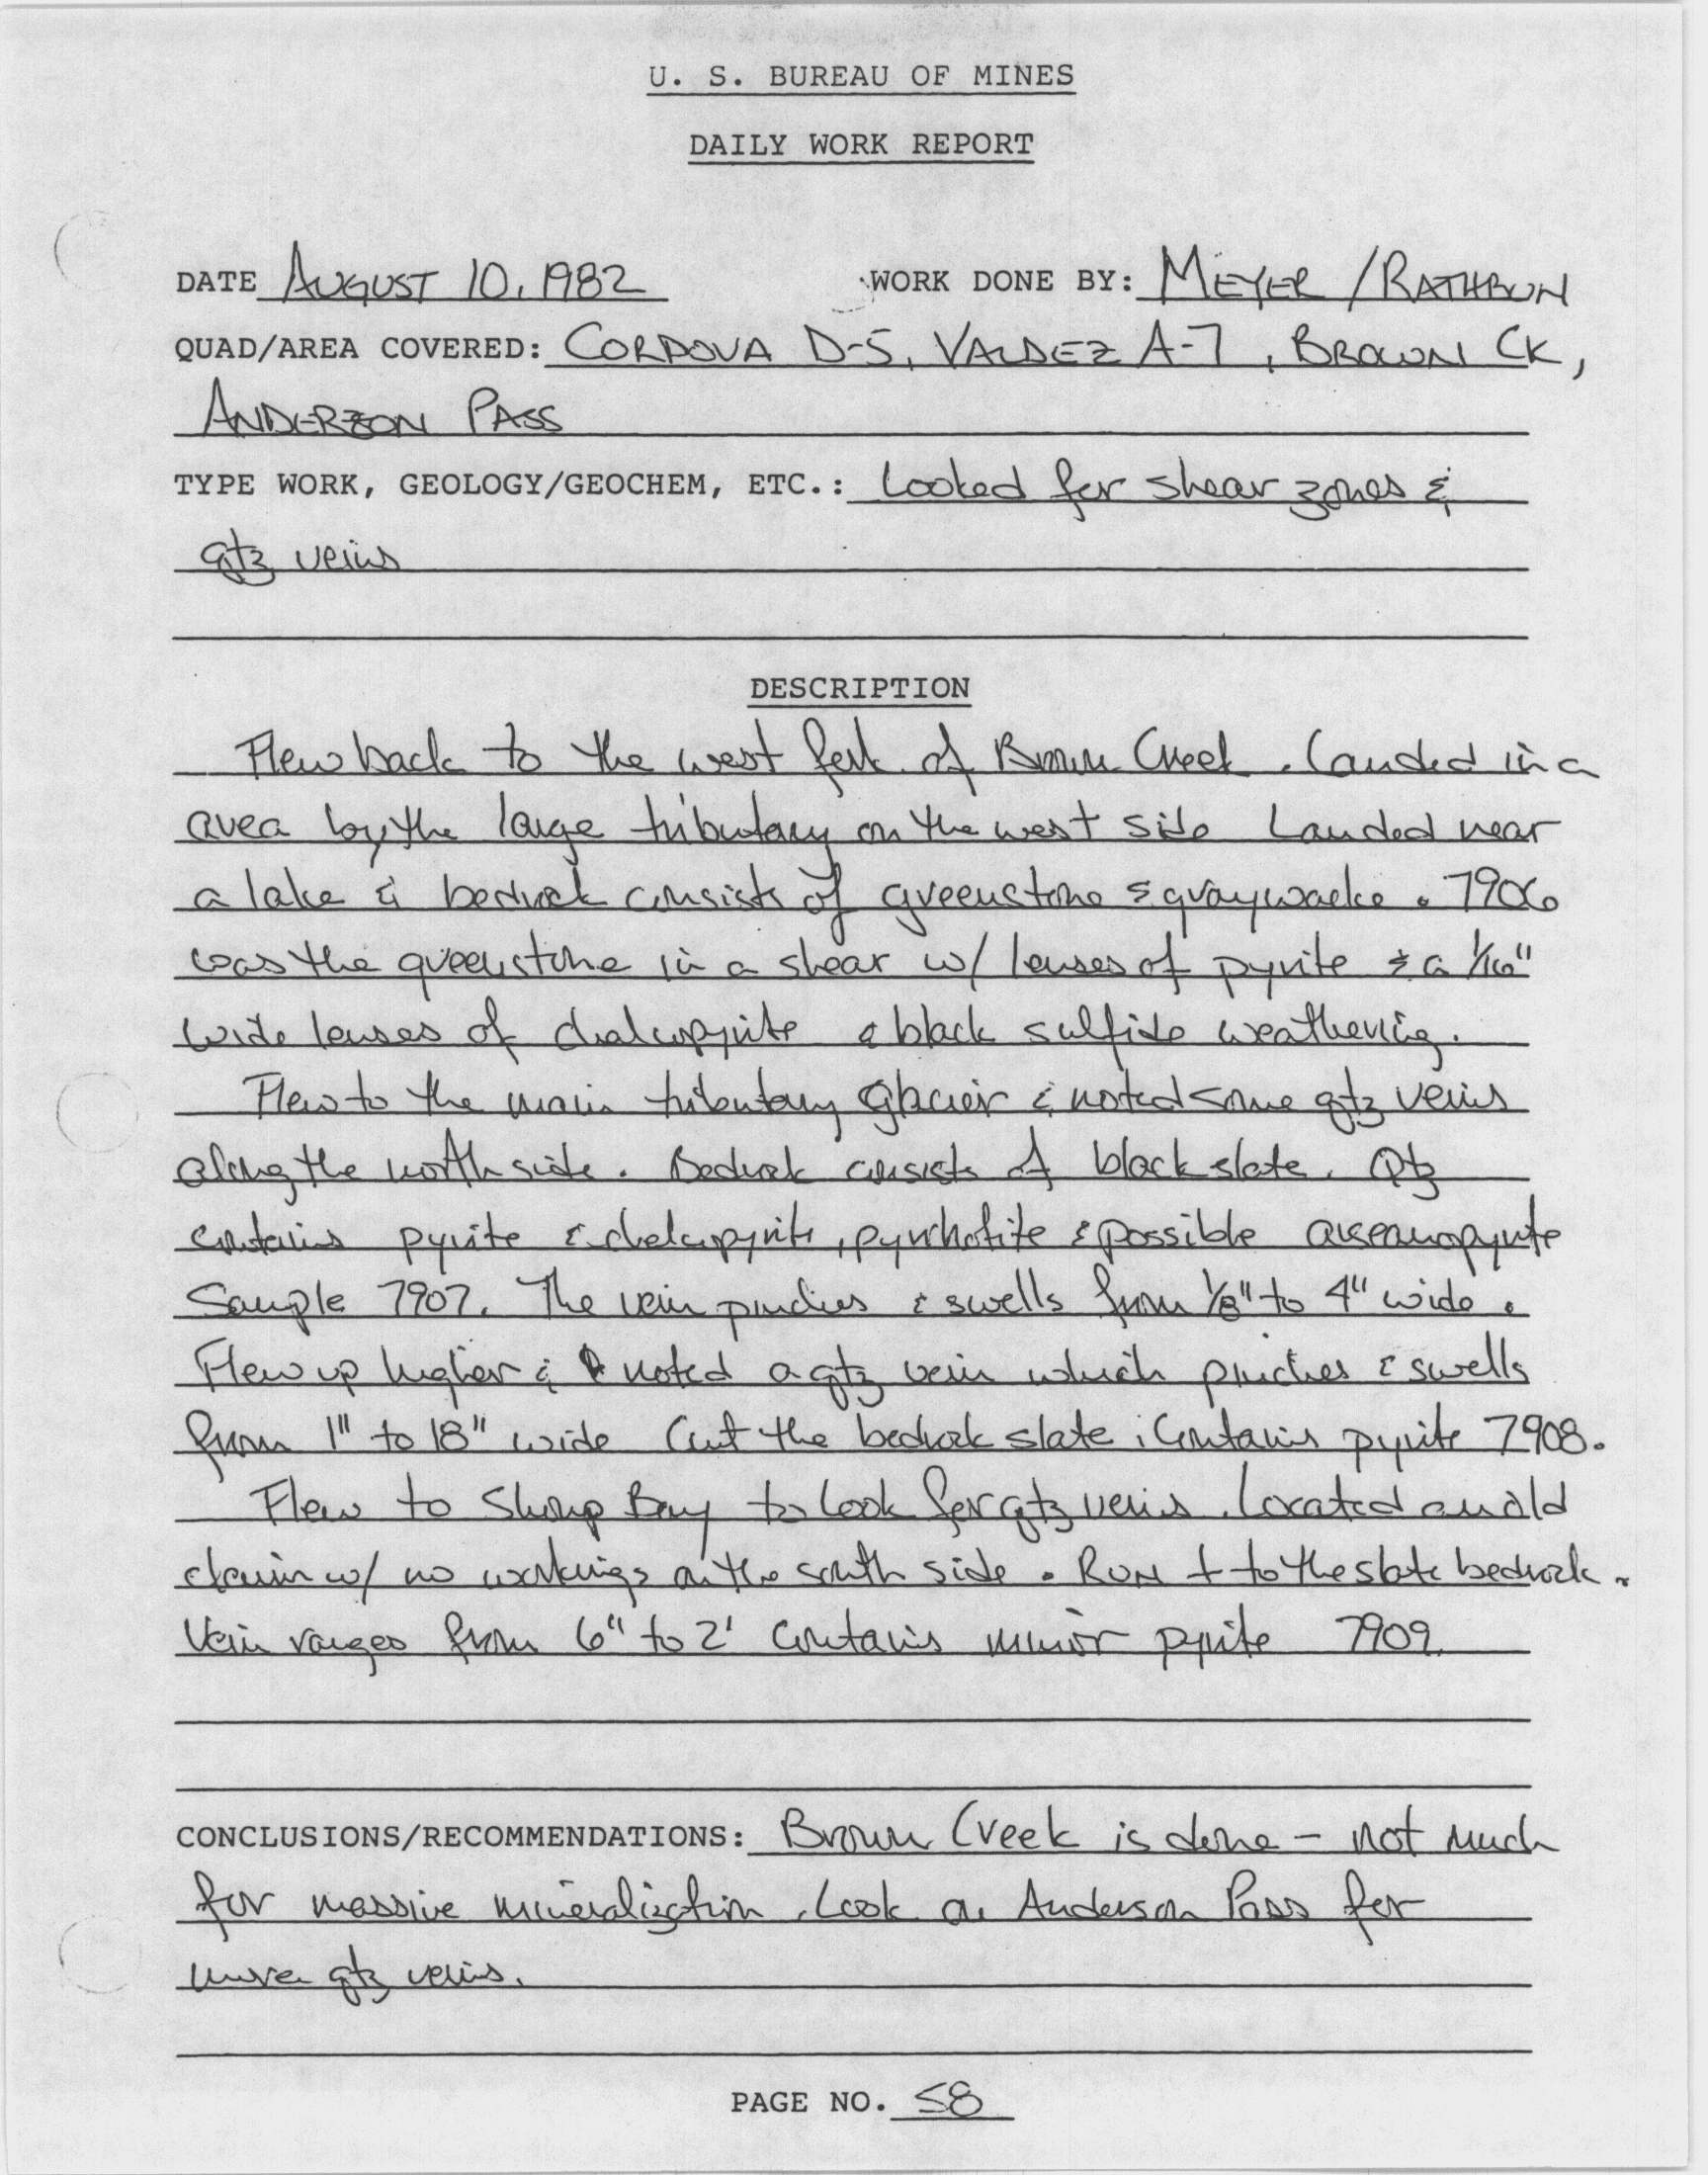 U. S. BUREAU OF MINES
DAILY WORK REPORT
DATE AUGUST 10, 1982 WORK DONE BY: MEYER / RATHBUN
QUAD/AREA COVERED: CORDOVA D-5, VALDEZ A-7, BROWN CK,
ANDERSON PASS
TYPE WORK, GEOLOGY/GEOCHEM, ETC.: Looked for shear zones &
qtz veins
DESCRIPTION
Flew back to the west fork of Brown Creek. Landed in a
area by the large tributary on the west side Landed near
a lake & bedrock consists of greenstone & graywacke. 7906
was the greenstone in a shear w/ lenses of pyrite & a 1/16"
wide lenses of chalcopyrite & black sulfide weathering.
Flew to the main tributary glacier & noted some qtz veins
along the north side. Bedrock consists of black slate. Qtz
contains pyrite & chalcopyrite, pyrrhotite & possible arsenopyrite
Sample 7907. The vein pinches & swells from 1/8" to 4" wide.
Flew up higher & noted a qtz vein which pinches & swells
from 1" to 18" wide Cut the bedrock slate; Contains pyrite 7908.
Flew to Shoup Bay to look for qtz veins. Located an old
claim w/ no workings on the south side. Run ⊥ to the slate bedrock.
Vein ranges from 6" to 2' Contains minor pyrite 7909.
CONCLUSIONS/RECOMMENDATIONS: Brown Creek is done - not much
for massive mineralization. Look on Anderson Pass for
more qtz veins.
PAGE NO. 58